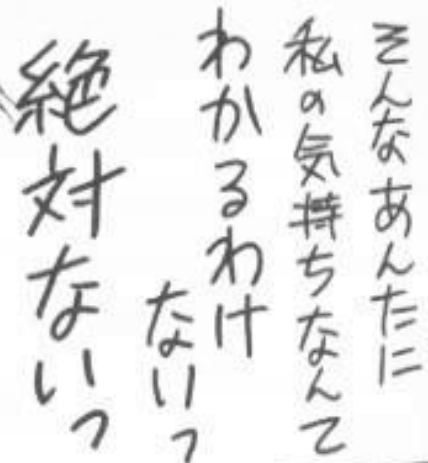 そんなあんたに
私の気持ちなんて
わかるわけ
ないっ
絶対ないっ